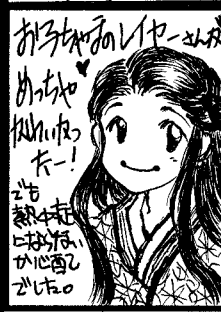 おろちゃまのレイヤーさんが
めっちゃ
かわいかっ
たー!
でも
熱中症
にならない
か心配で
でした。